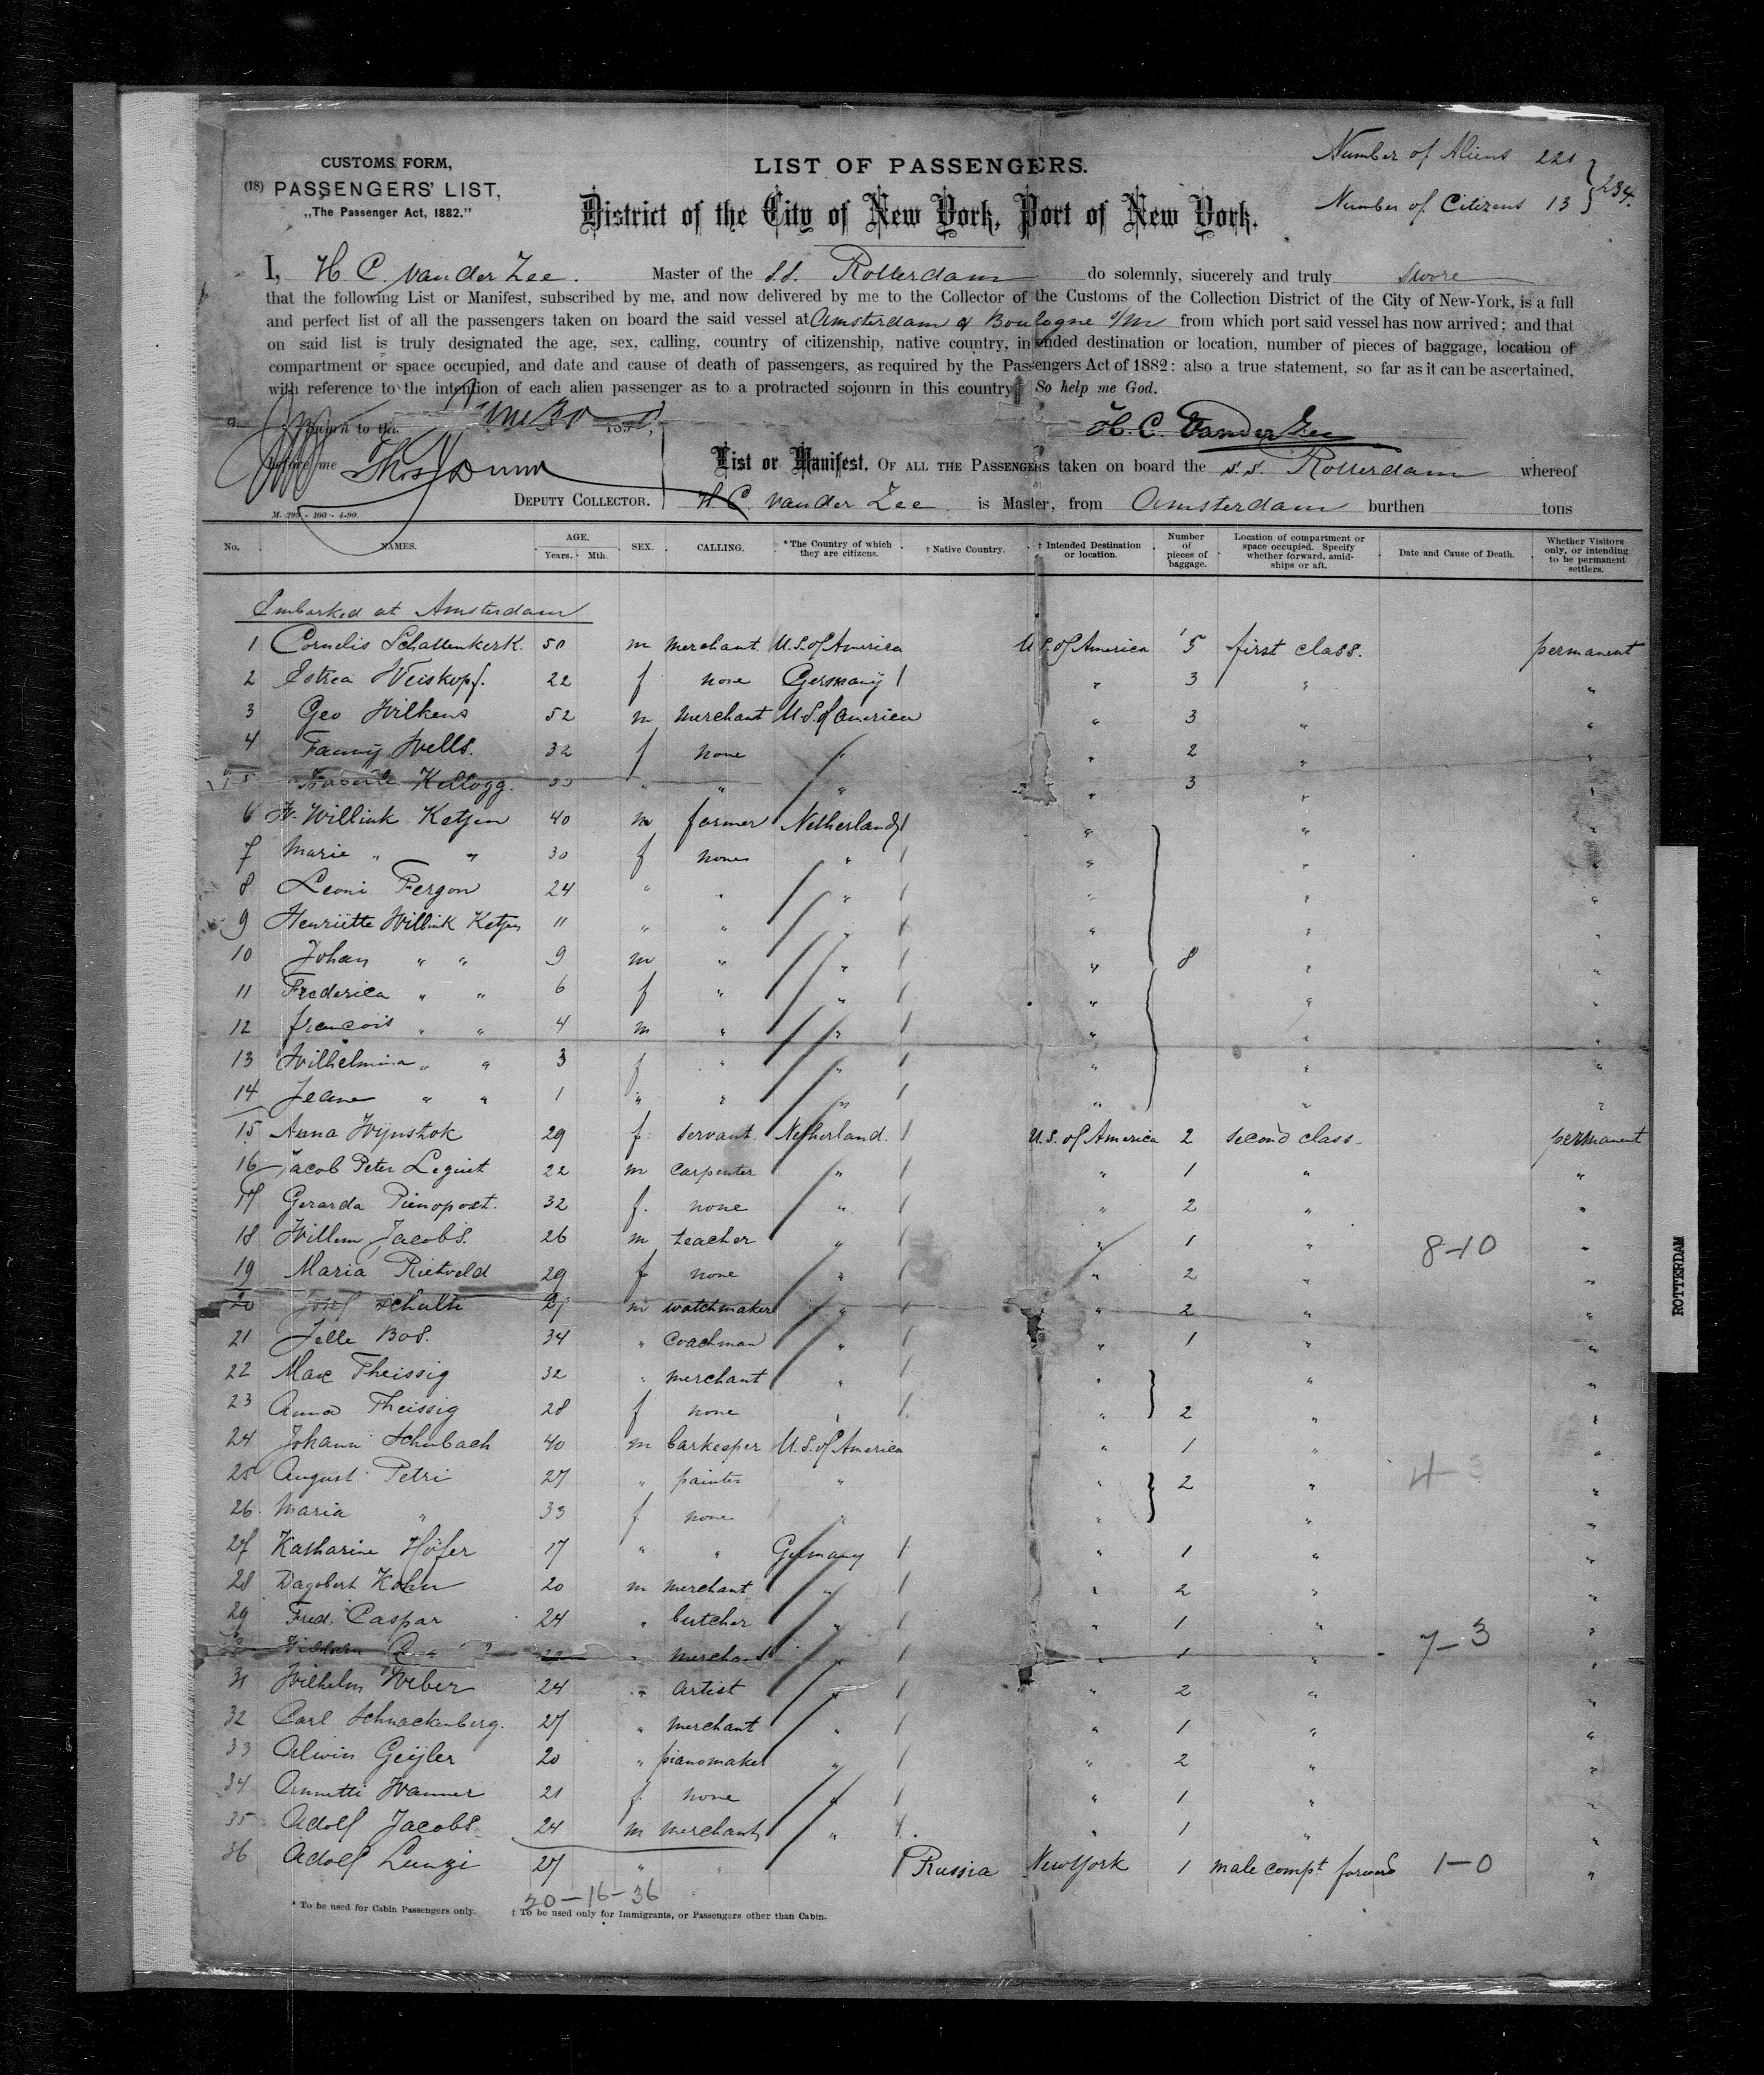 Number of Aliens 221
Number of Citizens 13 } 234.
CUSTOMS FORM,
(18) PASSENGERS' LIST,
„The Passenger Act, 1882."
LIST OF PASSENGERS.
District of the City of New York, Port of New York.
I, H. C. van der Zee. Master of the s.s. Rotterdam do solemnly, sincerely and truly swore
that the following List or Manifest, subscribed by me, and now delivered by me to the Collector of the Customs of the Collection District of the City of New-York, is a full
and perfect list of all the passengers taken on board the said vessel at Amsterdam & Boulogne s/m from which port said vessel has now arrived; and that
on said list is truly designated the age, sex, calling, country of citizenship, native country, intended destination or location, number of pieces of baggage, location of
compartment or space occupied, and date and cause of death of passengers, as required by the Passengers Act of 1882: also a true statement, so far as it can be ascertained,
with reference to the intention of each alien passenger as to a protracted sojourn in this country. So help me God.
Sworn to the 30 189
H. C. Van der Zee
before me Thos Dunn
DEPUTY COLLECTOR.
List or Manifest, OF ALL THE PASSENGERS taken on board the s.s. Rotterdam whereof
H. C. van der Zee is Master, from Amsterdam burthen tons
M. 299 - 100 - 4-90.
No. NAMES. AGE. Years. Mth. SEX. CALLING. * The Country of which they are citizens. † Native Country. † Intended Destination or location. Number of pieces of baggage. Location of compartment or space occupied. Specify whether forward, amidships or aft. Date and Cause of Death. Whether Visitors only, or intending to be permanent settlers.
Embarked at Amsterdam
1 Cornelis Schattenkerk. 50 m merchant U.S. of America U.S. of America 5 first class. permanent
2 Estrea Weiskopf. 22 f none Germany / " 3 " "
3 Geo Wilkens 52 m merchant U.S. of America " 3 " "
4 Fanny Wells. 32 f none " " 2 " "
5 Kellogg. " " " " 3 " "
6 W. Willink Ketjen 40 m farmer Netherland / " " "
7 Marie " " 30 f none " / " " "
8 Leoni Fergon 24 " " " / " " "
9 Henriëtte Willink Ketjen 11 " " " / " " "
10 Johan " " 9 m " " / " 8 " "
11 Frederica " " 6 f " " / " " "
12 francois " " 4 m " " / " " "
13 Wilhelmina " " 3 f " " / " " "
14 Jeane " " 1 " " " / " " "
15 Anna Wijnstok 29 f. servant. Netherland. / U.S. of America 2 second class. permanent
16 Jacob Peter Leguit 22 m carpenter " / " 1 " "
17 Gerarda Pienopost. 32 f. none " / " 2 " "
18 Willem Jacobs. 26 m teacher " / " 1 " 8-10 "
19 Maria Rietveld 29 f none " / " 2 " "
20 Schulte m watchmaker " / " 2 " "
21 Jelle Bos. 34 " Coachman " / " 1 " "
22 Max Theissig 32 " merchant " / " } " "
23 Anna Theissig 28 f none " / " 2 " "
24 Johann Schubach 40 m barkeeper U.S. of America " 1 " "
25 August Petri 27 " painter " " } 2 " 4-3 "
26 Maria " 33 f none " " " "
27 Katharine Höfer 17 " " Germany / " 1 " "
28 Dagobert Kahn 20 m merchant " / " 2 " "
29 Fred. Caspar 24 " butcher " / " 1 " "
Wilhelm " merchant " / " 1 " 7-3 "
31 Wilhelm Weber 24 " artist " / " 2 " "
32 Carl Schnackenberg. 27 " merchant " / " 1 " "
33 Alwin Geijler 20 " pianomaker " / " 2 " "
34 Annetti Wanner 21 f. none " / " 1 " "
35 Adolf Jacobs. 24 m merchant " / " 1 " "
36 Adolf Lunzi 27 " " / Russia New York 1 male compt. forward 1-0 "
20-16-36
* To be used for Cabin Passengers only. † To be used only for Immigrants, or Passengers other than Cabin.
ROTTERDAM